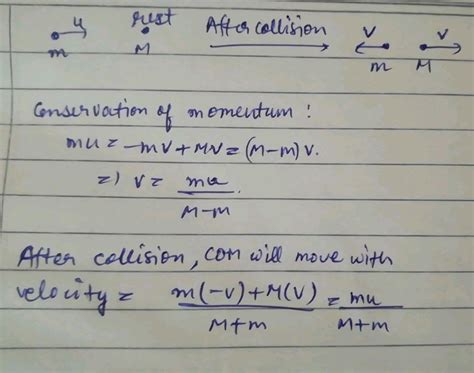 u rest After collision v v
m M m M
Conservation of momentum :
mu = -mv + Mv = (M-m) v.
=) v = mu
M-m
After collision, COM will move with
velocity = m(-v)+M(v) = mu
M+m M+m